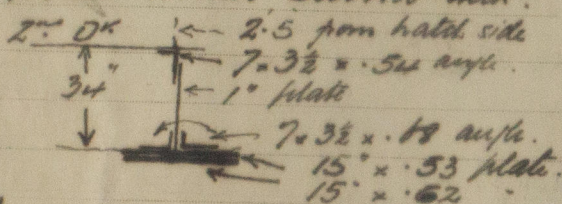 2nd Dk
2.5 from hatch side
7 × 3½ × .54 angle.
34"
1" plate
7 × 3½ × .68 angle.
15" × .53 plate.
15" × .62 "